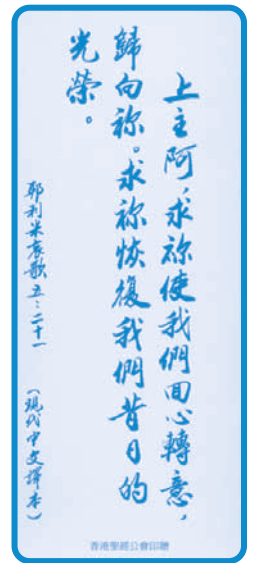 上主阿，求祢使我們回心轉意，
歸向祢。求祢恢復我們昔日的
光榮。
耶利米哀歌五：二十一
（現代中文譯本）
香港聖經公會印贈